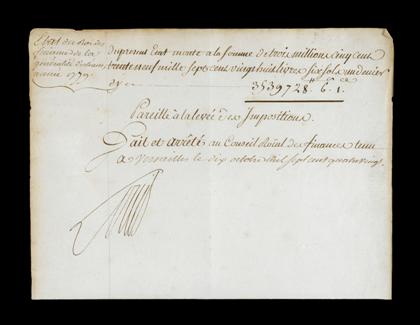 Etat du Roi des
finances de la
généralité d'orleans
année 1779.
du present Etat monte a la somme de trois millions cinq cent
trente neuf mille sept cens vingt huit livres six sols un denier
cy
3539728.ᵗᵗ 6.ˢ 1.ᵈ
Pareille à la levée des Impositions.
Fait et arrêté au Conseil Roïal des finances tenu
a Versailles le dix octobre Mil sept cent quatre vingt.